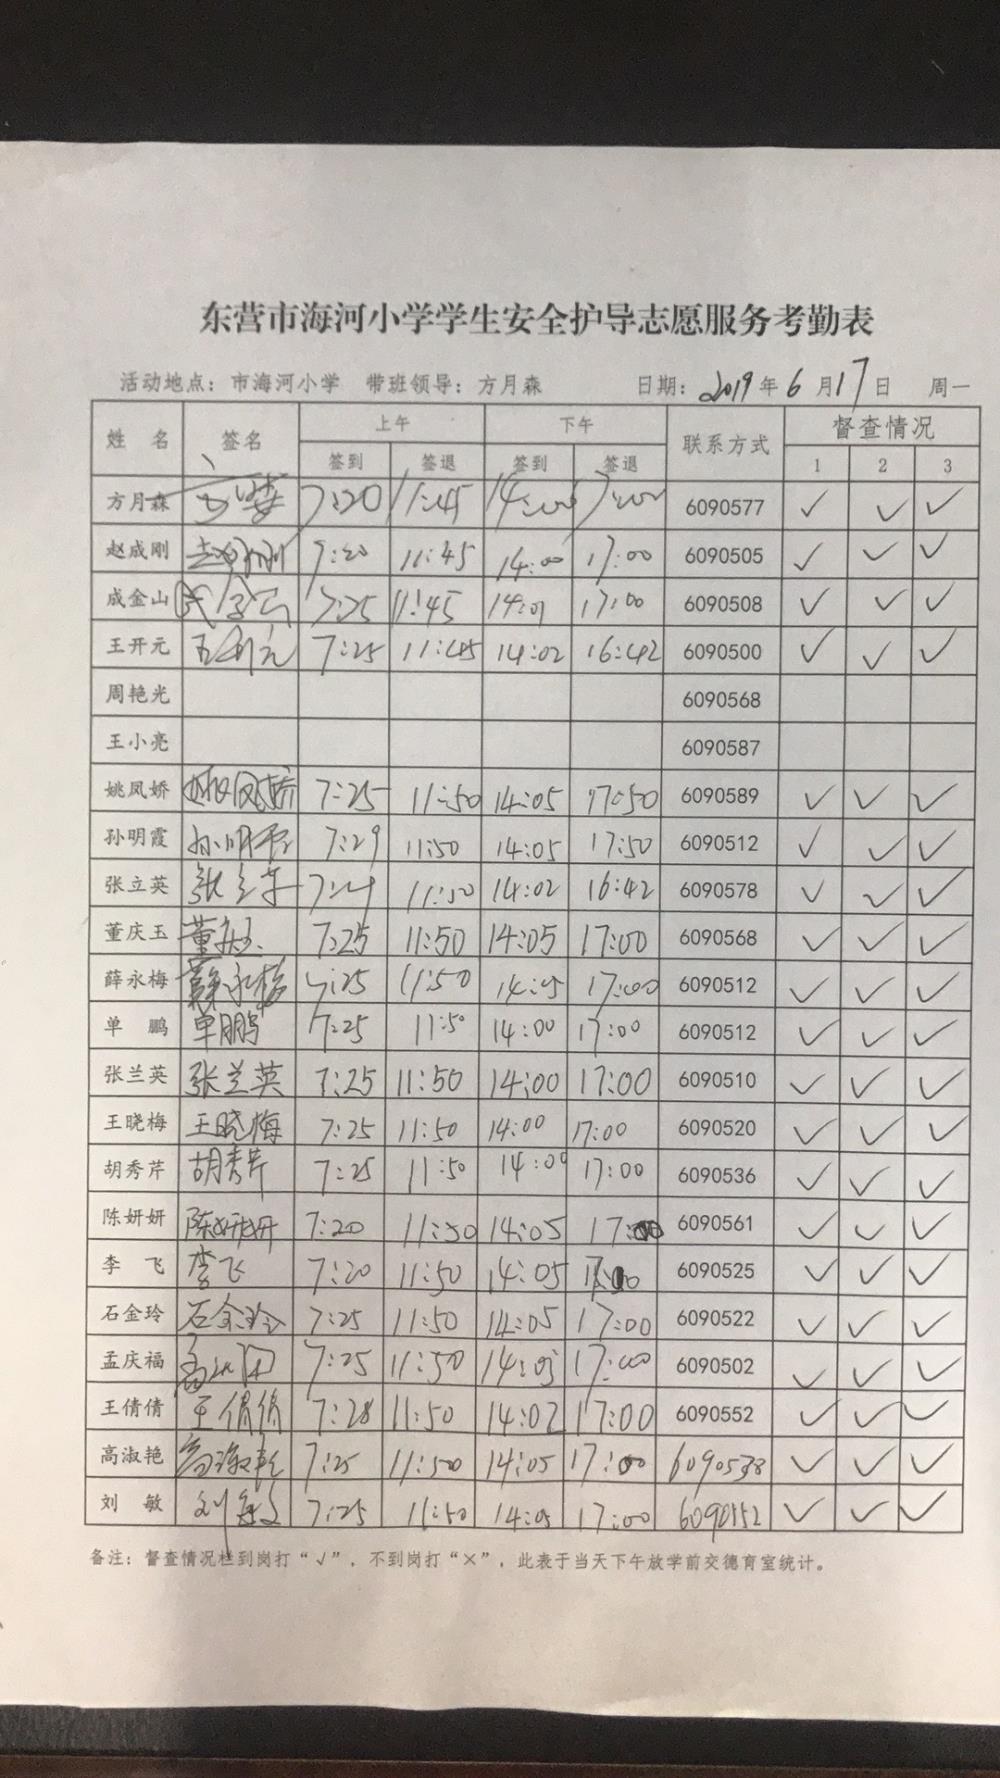 东营市海河小学学生安全护导志愿服务考勤表
活动地点：市海河小学 带班领导：方月森 日期：2019年6月17日 周一
姓 名 签名 上午 下午 联系方式 督查情况
签到 签退 签到 签退 1 2 3
方月森 7:20 11:45 14:00 17:00 6090577 ✓ ✓ ✓
赵成刚 赵成刚 7:20 11:45 14:00 17:00 6090505 ✓ ✓ ✓
成金山 成金山 7:25 11:45 14:01 17:00 6090508 ✓ ✓ ✓
王开元 王开元 7:25 11:45 14:02 16:42 6090500 ✓ ✓ ✓
周艳光 6090568
王小亮 6090587
姚凤娇 姚凤娇 7:25 11:50 14:05 17:50 6090589 ✓ ✓ ✓
孙明霞 孙明霞 7:29 11:50 14:05 17:50 6090512 ✓ ✓ ✓
张立英 张立英 11:50 14:02 16:42 6090578 ✓ ✓ ✓
董庆玉 董庆玉 7:25 11:50 14:05 17:00 6090568 ✓ ✓ ✓
薛永梅 薛永梅 7:25 11:50 14:05 17:00 6090512 ✓ ✓ ✓
单 鹏 单鹏 7:25 11:50 14:00 17:00 6090512 ✓ ✓ ✓
张兰英 张兰英 7:25 11:50 14:00 17:00 6090510 ✓ ✓ ✓
王晓梅 王晓梅 7:25 11:50 14:00 17:00 6090520 ✓ ✓ ✓
胡秀芹 胡秀芹 7:25 11:50 14:00 17:00 6090536 ✓ ✓ ✓
陈妍妍 陈妍妍 7:20 11:50 14:05 17:00 6090561 ✓ ✓ ✓
李 飞 李飞 7:20 11:50 14:05 17:00 6090525 ✓ ✓ ✓
石金玲 石金玲 7:25 11:50 14:05 17:00 6090522 ✓ ✓ ✓
孟庆福 7:25 11:50 14:05 17:00 6090502 ✓ ✓ ✓
王倩倩 王倩倩 7:28 11:50 14:02 17:00 6090552 ✓ ✓ ✓
高淑艳 高淑艳 7:25 11:50 14:05 17:00 6090538 ✓ ✓ ✓
刘 敏 刘敏 7:25 11:50 14:05 17:00 6090552 ✓ ✓ ✓
备注：督查情况栏到岗打“√”，不到岗打“×”，此表于当天下午放学前交德育室统计。